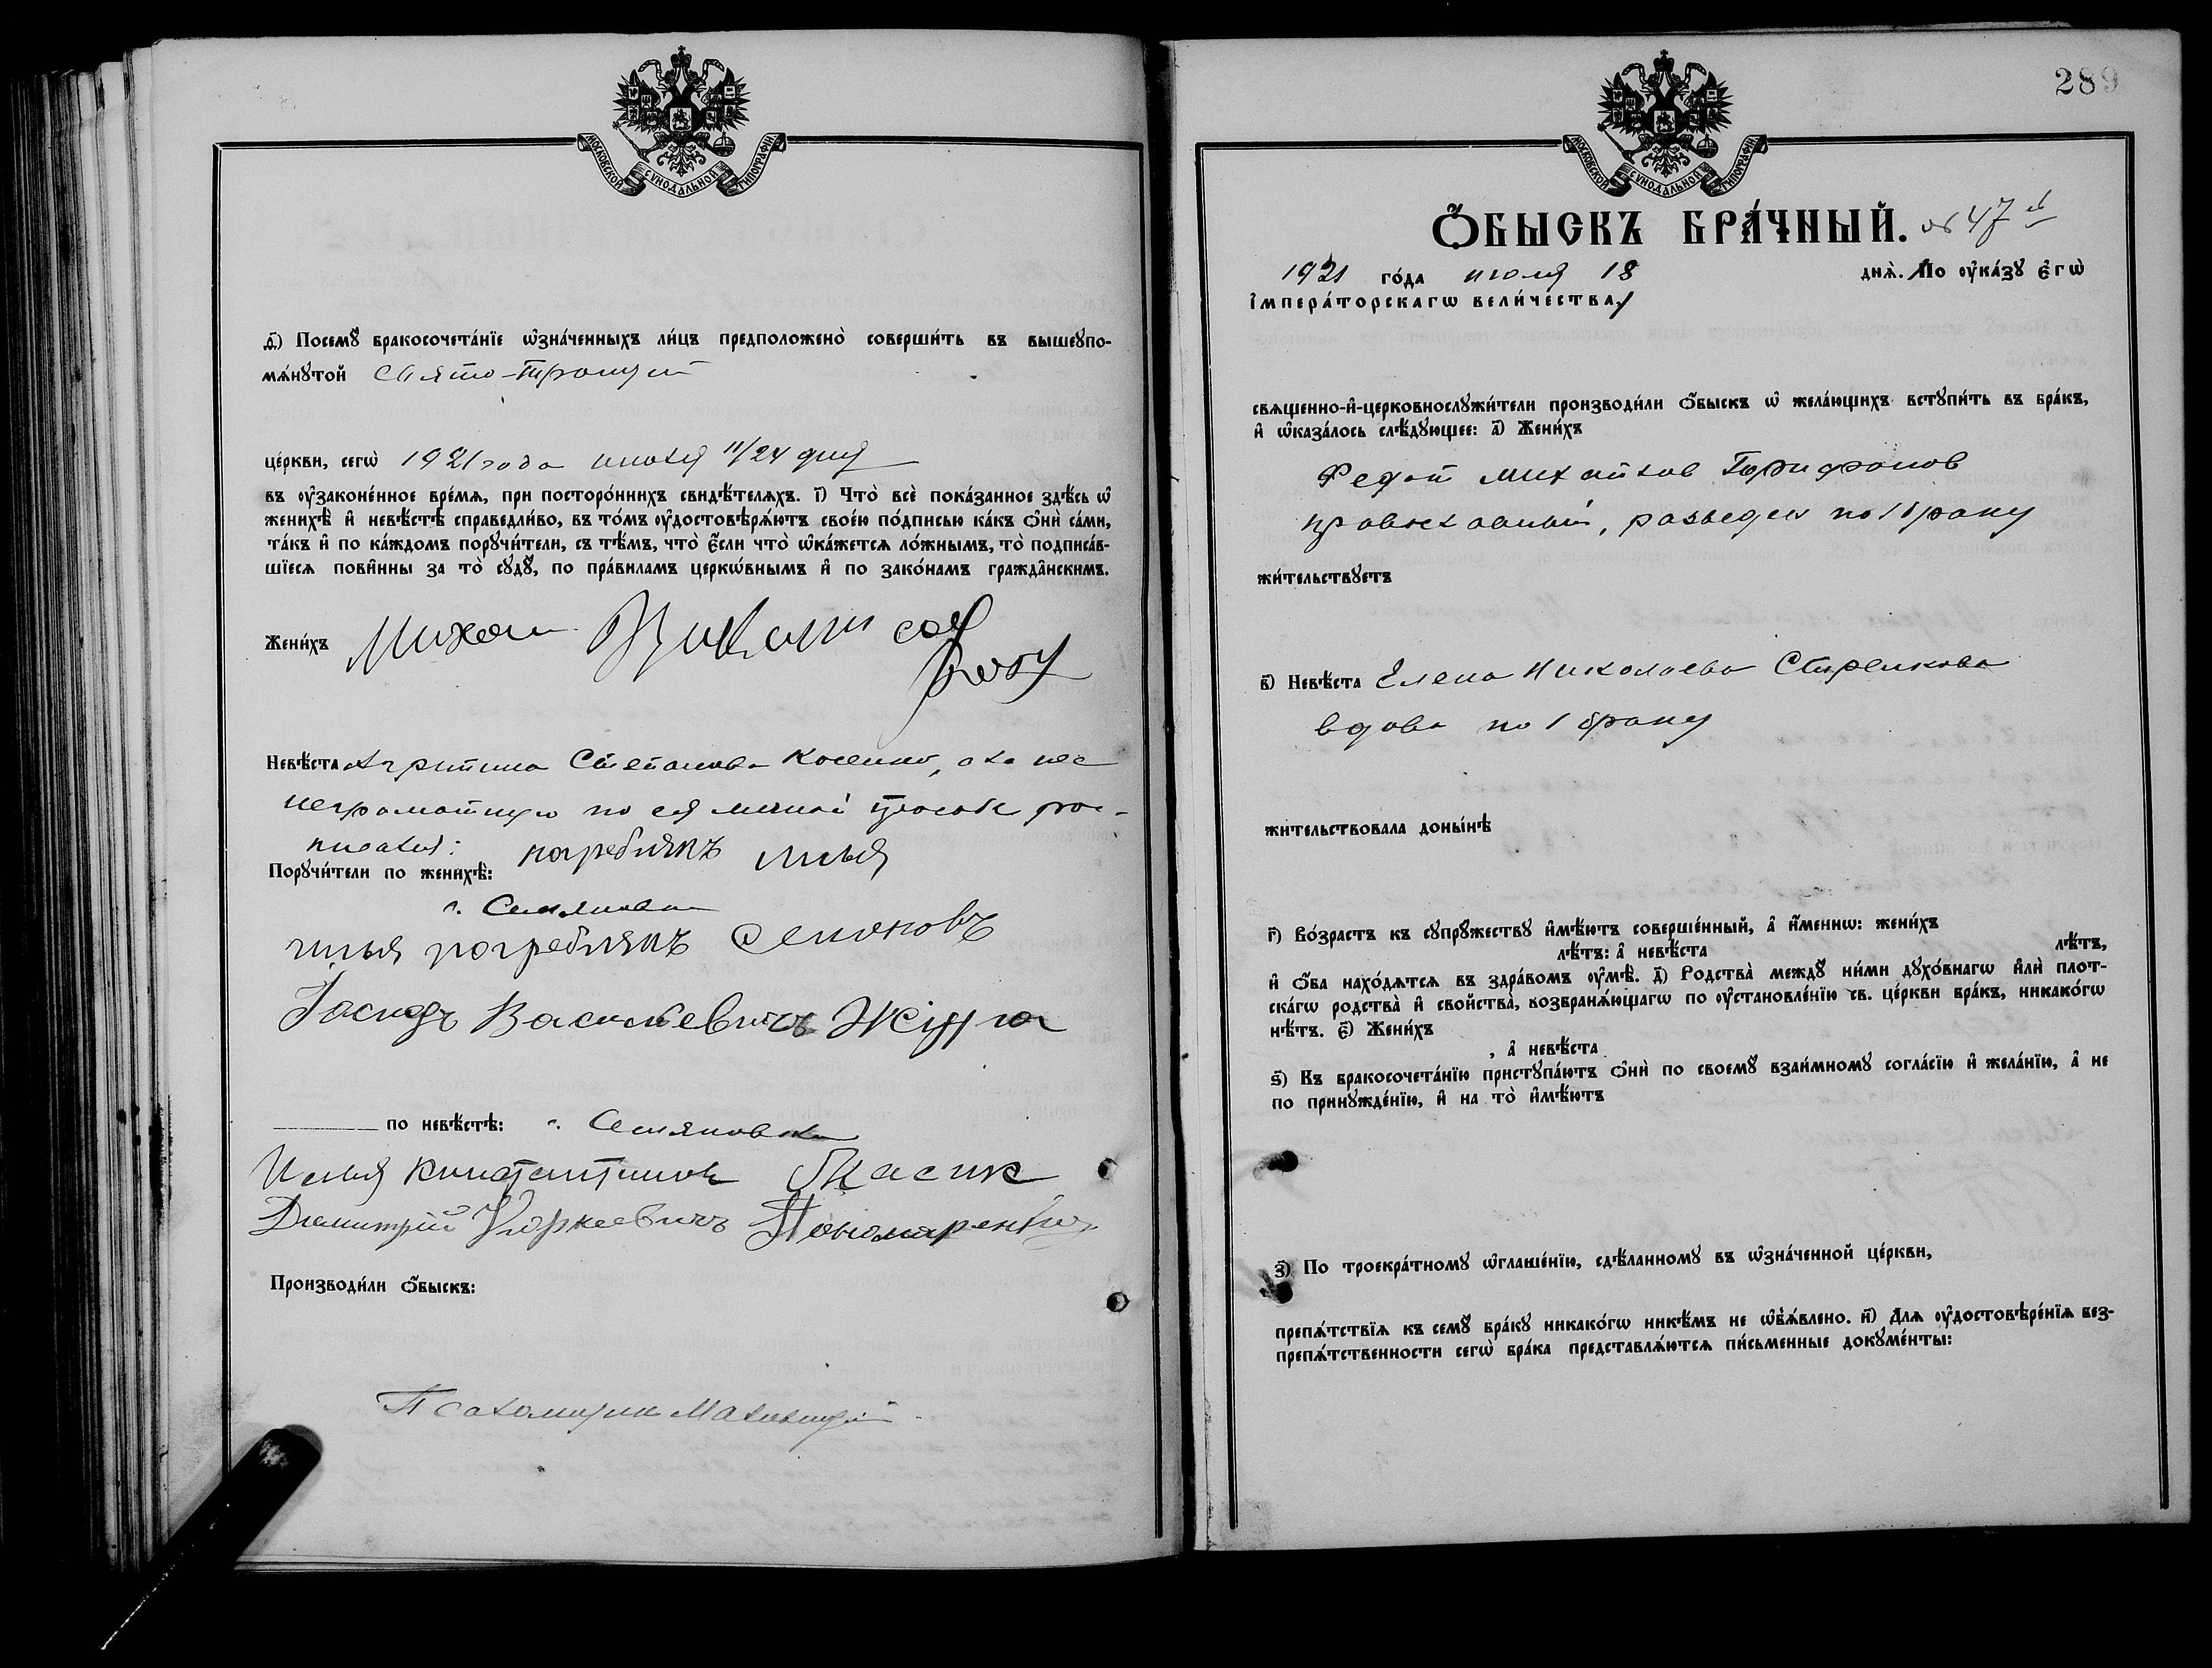 МОСКОВСКОЙ СУНОДАЛЬНОЙ ТИПОГРАФІИ
д҃) Посемꙋ̀ бракосочета́нїе ѡ҆зна́ченныхъ ли́цъ предположено̀ соверши́ть въ вышеꙋпо-
мѧ́нꙋтой Свято-Троицкой
це́ркви, сегѡ̀ 1921 года июля 11/24 дня
въ ᲂу҆законе́нное вре́мѧ, при посторо́ннихъ свидѣ́телѧхъ. і҃) Что̀ всѐ пока́занное здѣ́сь ѡ҆
женихѣ̀ и҆ невѣ́стѣ справедли́во, въ то́мъ ᲂу҆достовѣрѧ́ютъ свое́ю по́дписью ка́къ ѻ҆нѝ са́ми,
та́къ и҆ по ка́ждомъ порꙋчи́тели, съ тѣ́мъ, что̀ є҆́сли что̀ ѡ҆ка́жетсѧ ло́жнымъ, то̀ подписа́в-
шїесѧ пови́нны за то̀ сꙋдꙋ̀, по пра́виламъ церкѡ́внымъ и҆ по зако́намъ гражда̑нскимъ.
Жени́хъ Михаи
Невѣ́ста Степанова Косенко, а за нее
неграмотную по ея личной просьбе рос-
писался: погребнякъ илья
Порꙋчи́тели по женихѣ̀:
с. Семяновка
илья погребнякъ Семеновъ
Іосифъ Васильевичъ
по невѣ́стѣ: с. Семяновка
Илья Константинов
Димитрій Пономаренко
Производи́ли ѻ҆́быскъ:
Псаломщик
289
МОСКОВСКОЙ СУНОДАЛЬНОЙ ТИПОГРАФІИ
Ѻ҆́БЫСКЪ БРА́ЧНЫЙ. № 47
1921 го́да июля 18 днѧ̀. По ᲂу҆ка́зꙋ є҆гѡ̀
і҆мпера́торскагѡ вели́чества,
свѧщенно-и҆-церковнослꙋжи́тели производи́ли ѻ҆́быскъ ѡ҆ жела́ющихъ встꙋпи́ть въ бра́къ,
и҆ ѡ҆каза́лось слѣ́дꙋющее: а҃) Жени́хъ
Федот Михайлов Трифонов
православный, разведен по 1 браку
жи́тельствꙋетъ
в҃) Невѣ́ста Елена Николаева Стрелкова
вдова по 1 браку
жи́тельствовала доны́нѣ
г҃) Во́зрастъ къ сꙋпрꙋ́жествꙋ и҆мѣ́ютъ соверше́нный, а҆ и҆́меннѡ: жени́хъ
лѣ́тъ: а҆ невѣ́ста лѣ́тъ,
и҆ ѻ҆́ба нахо́дѧтсѧ въ здра́вомъ ᲂу҆мѣ̀. д҃) Родства̀ междꙋ̀ ни́ми дꙋхо́внагѡ и҆лѝ плот-
ска́гѡ родства̀ и҆ сво́йства, возбранѧ́ющагѡ по ᲂу҆становле́нїю св. це́ркви бра́къ, никако́гѡ
нѣ́тъ. є҃) Жени́хъ
, а҆ невѣ́ста
ѕ҃) Къ бракосочета́нїю пристꙋпа́ютъ ѻ҆нѝ по своемꙋ̀ взаи́мномꙋ согла́сїю и҆ жела́нїю, а҆ не
по принꙋжде́нїю, и҆ на то̀ и҆мѣ́ютъ
з҃) По троекра́тномꙋ ѡ҆глаше́нїю, сдѣ́ланномꙋ въ ѡ҆зна́ченной це́ркви,
препѧ́тствїѧ къ семꙋ̀ бра́кꙋ никако́гѡ никѣ́мъ не ѡ҆б̾ѧ́влено. и҃) Для ᲂу҆достовѣре́нїѧ без-
препѧ́тственности сегѡ̀ бра́ка представлѧ́ютсѧ пи́сьменные докꙋме́нты: